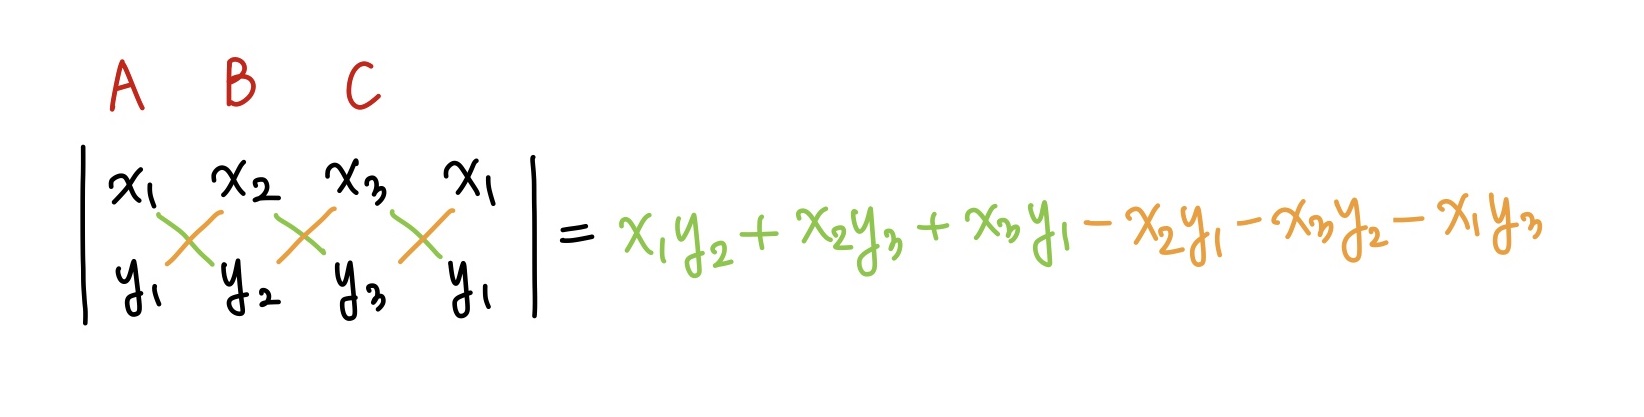 A B C
| x₁ x₂ x₃ x₁ |
| y₁ y₂ y₃ y₁ | = x₁y₂ + x₂y₃ + x₃y₁ - x₂y₁ - x₃y₂ - x₁y₃